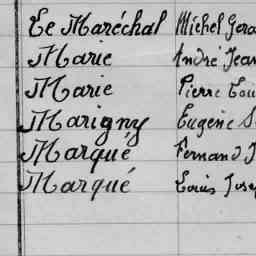 Le Maréchal Michel Gera
Marie André Jean
Marie Pierre Loui
Marigny Eugène S
Marqué Fernand J
Marqué Louis Jose